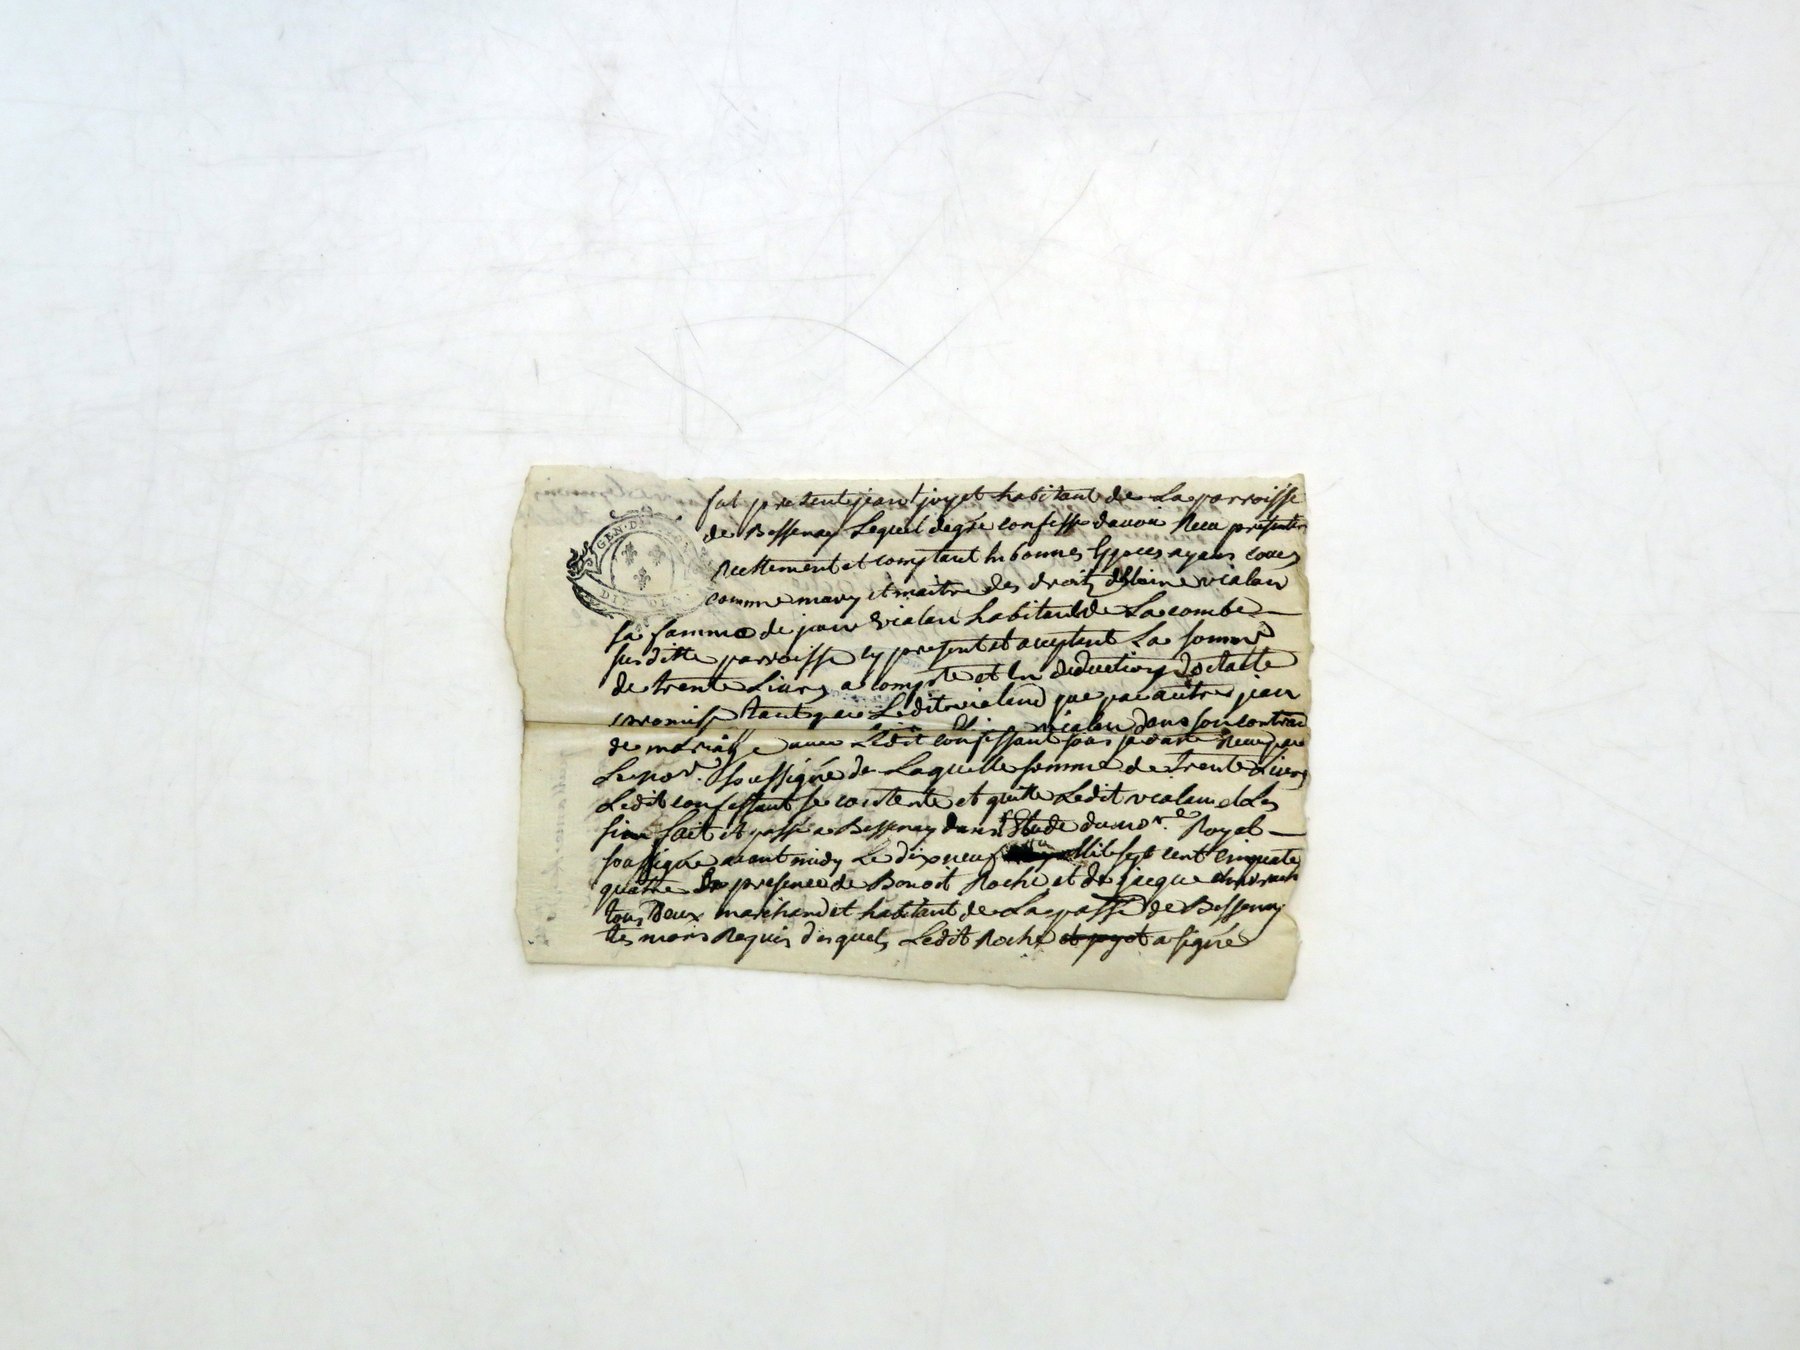 fut present jean joyet habitant de La parroisse
de Bessenay Lequel de gré confesse davoir Reçu presente
Reellement et comptant en bonnes Especes ayans cours
GEN. D
DIX. DEN.
comme mary et maitre des droits vialan
sa famme de jean vialan habitant de Lacombe
susditte parroisse cy present et aceptant La somme
de trente Livres a compte et en deduction de
promise tant par Ledit vialand que par autre jean
vialan dans son contrac
de mariage avec Ledit confessant par
Le no.re soussigné de Laquelle somme de trente Livres
Ledit confessant se contente et quitte Ledit vialan et Les
sien fait et passé a Bessenay dans Etude du no.re Royal
soussigné avant midy Le dixneuf Mil sept cent cinquate
quatre En presence de Benoit Roche et de jacque
tous Deux marchand et habitant de La passe de Bessenay
tesmoins Requis desquels Ledit Roche et joyet a signé